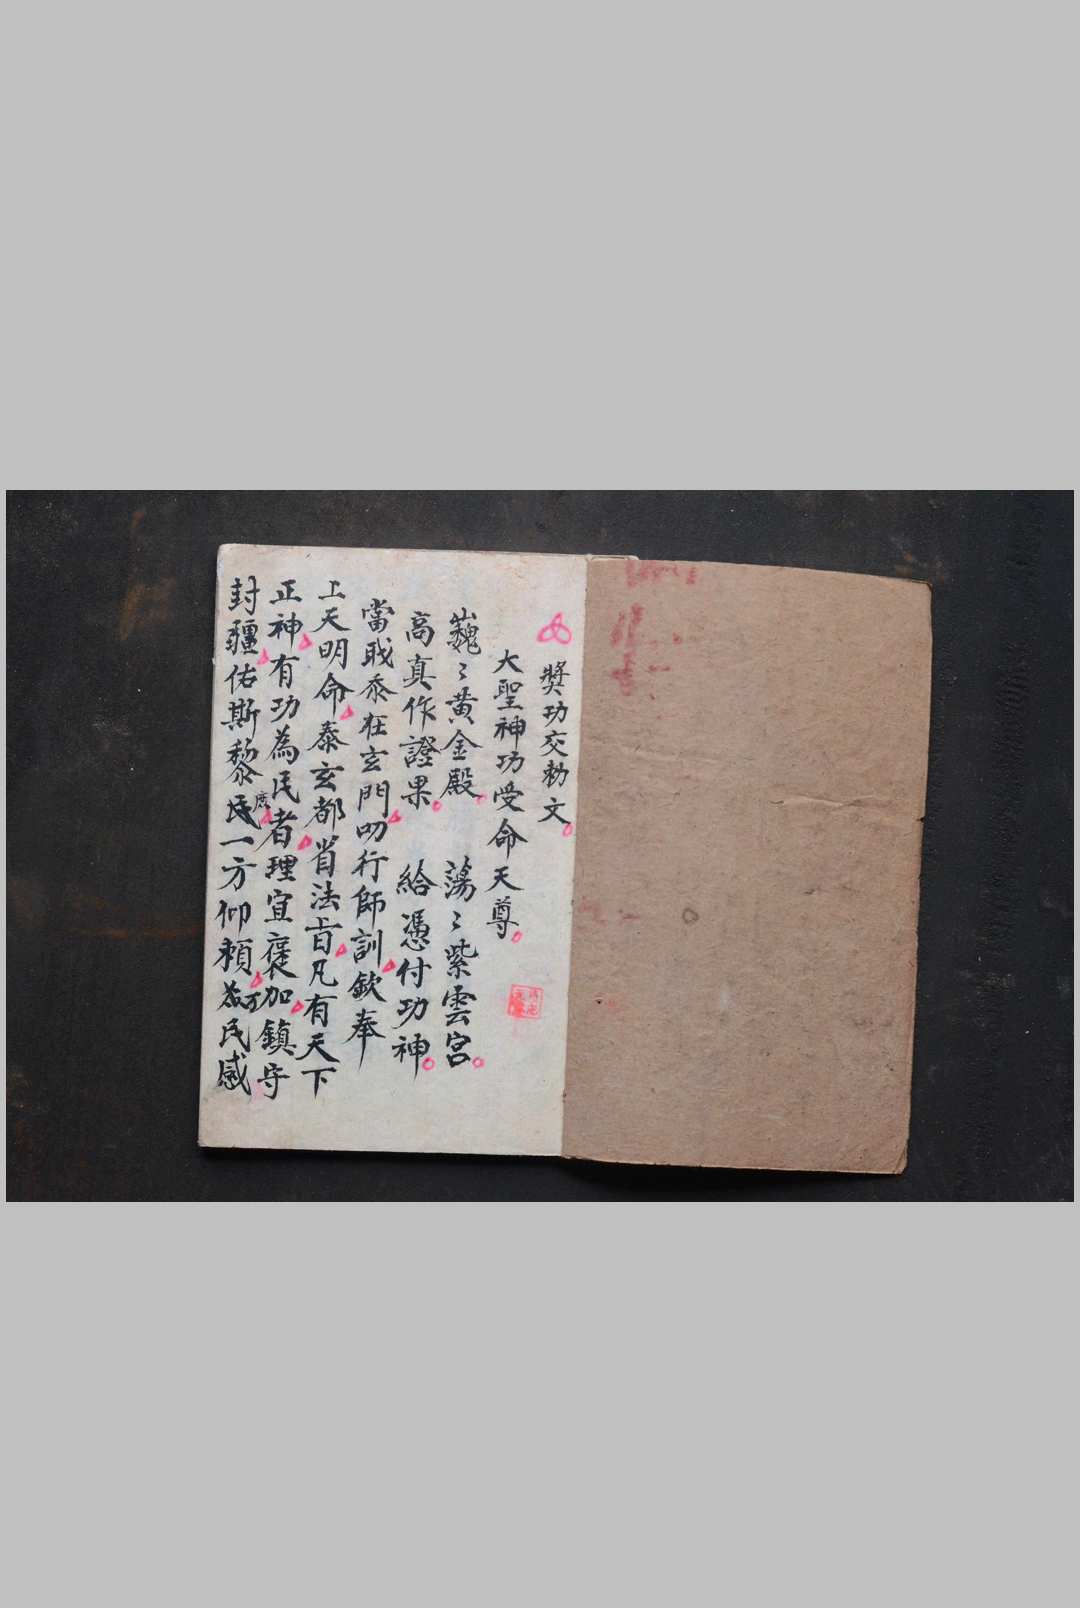 獎功交勅文
大聖神功受命天尊
巍〻黃金殿 蕩〻紫雲宮
高真作證果 給憑付功神
當戢忝在玄門叨行師訓欽奉
上天明命泰玄都省法旨凡有天下
正神有功為民者理宜褒加鎮守
封疆佑斯黎庶一方仰賴為民感